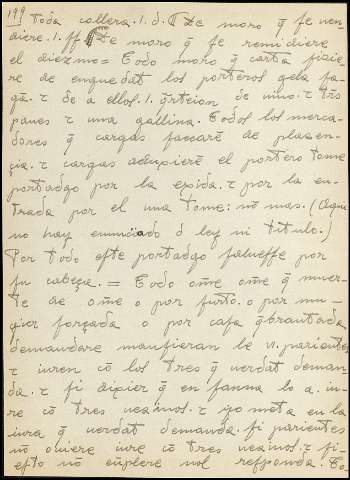 199
toda collera .1. d. De moro q̃ se ven-
diere .1. ff De moro q̃ se remidiere
el diezmo = Todo moro q̃ carta fizie
re de enguedat los porteros gela fa-
gã. τ de a ellos .1. q̃rteron de vino. τ tr̃s
panes τ una gallina. Todos los merca-
dores q̃ cargas sacarẽ de plasen-
çia. τ cargas aduxierẽ el portero tome
portadgo por la exida. τ por la en-
trada por el una tome: nõ mas. (Aque
no hay enunciado ò ley ni titulo.)
Por todo este portadgo salvesse por
su cabeça. = Todo om̃e om̃e q̃ muer-
te de om̃e o por furto. o por mu-
gier forçada o por casa q̃brantada
demandare manfieran le v. parientes
τ iuren cõ los tres q̃ verdat deman
da. τ si dixier q̃ en fanna lo a. iu-
re cõ tres vezinos. τ yo meta en la
iura q̃ verdat demanda. si parientes
nõ oviere iure cõ tres vezinos τ si
esto nõ cũplere nol responda. To-